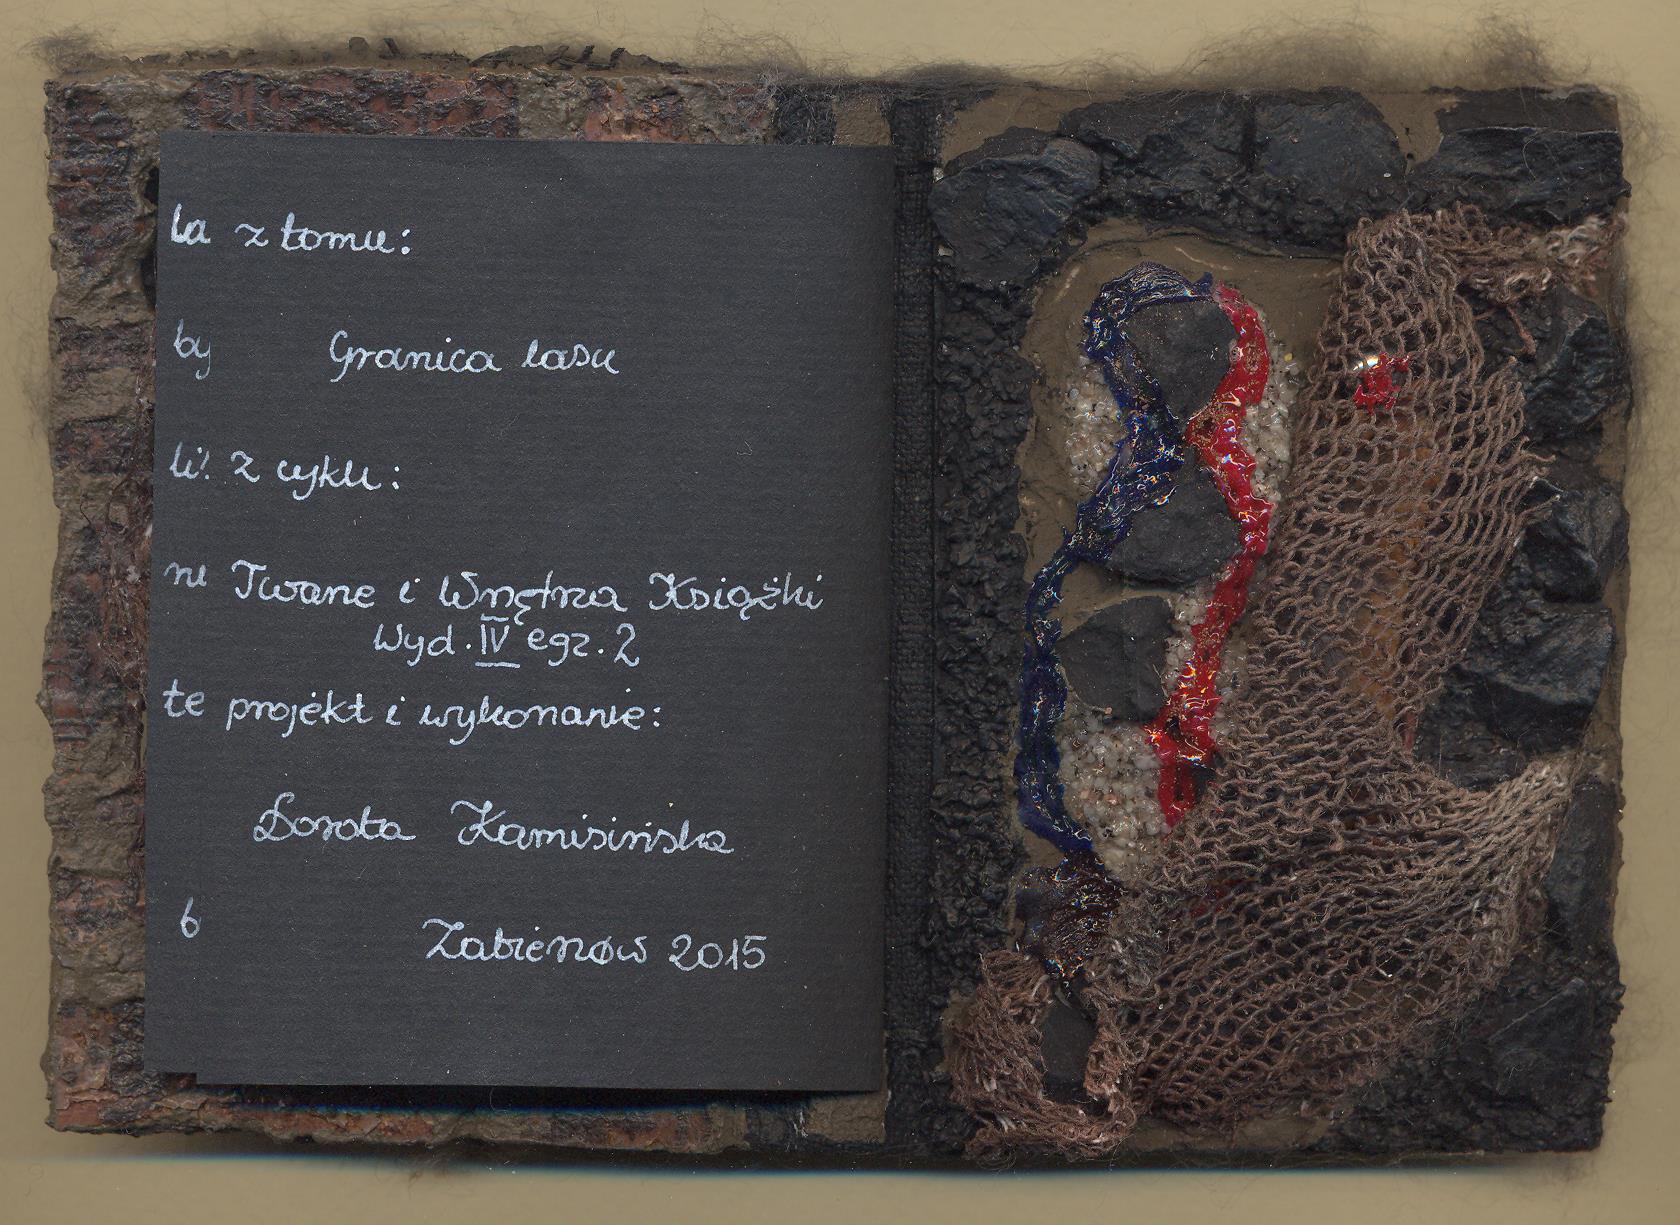 la z tomu:
by Granica lasu
li! z cyklu:
Twarze i Wnętrza Książki
Wyd. IV egz. 2
te projekt i wykonanie:
Dorota Kamisińska
b Zabierzów 2015